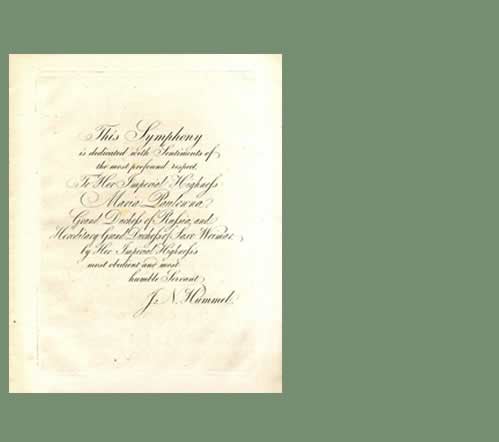 This Symphony
is dedicated with Sentiments of
the most profound respect,
To Her Imperial Highness
Maria Paulowna
Grand Duchess of Russia, and
Hereditary Grand Duchess of Saxe Weimar,
by Her Imperial Highness's
most obedient and most
humble Servant
J. N. Hummel.